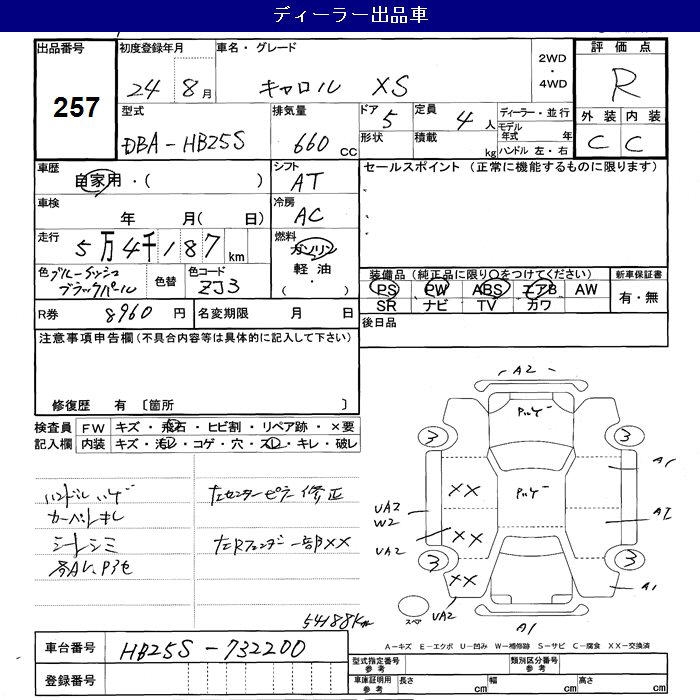 ディーラー出品車
出品番号 257
初度登録年月 24年 8月
車名・グレード キャロル XS
2WD・4WD
評価点 R
外装 C 内装 C
型式 DBA-HB25S
排気量 660 CC
ドア 5
形状
定員 4人
積載 kg
ディーラー・並行
モデル年式 年
ハンドル 左・右
車歴 自家用・( )
シフト AT
セールスポイント(正常に機能するものに限ります)
車検 年 月( 日)
冷房 AC
走行 5万4千187km
燃料 ガソリン 軽油・( )
色 ブルーイッシュブラックパール
色替
色コード ZJ3
装備品(純正品に限り○をつけてください)
PS PW ABS エアB AW
SR ナビ TV カワ
新車保証書 有・無
R券 8960円
名変期限 月 日
後日品
注意事項申告欄(不具合内容等は具体的に記入して下さい)
修復歴 有 〔箇所 〕
検査員記入欄
FW キズ・飛石・ヒビ割・リペア跡・×要
内装 キズ・汚レ・コゲ・穴・スレ・キレ・破レ
ハンドルハゲ
カーペットキレ
シートシミ
左センターピラー修正
左Rフェンダー一部XX
54188Km
A2
ルーフ
3 3
A1
XX
UA2
W2
A1
XX
UA2
3 3
XX
UA2
A1
スペア
A1
A-キズ E-エクボ U-凹み W-補修跡 S-サビ C-腐食 XX-交換済
車台番号 HB25S-732200
登録番号
型式指定番号 参考
類別区分番号 参考
車庫証明用 参考
長さ cm 幅 cm 高さ cm